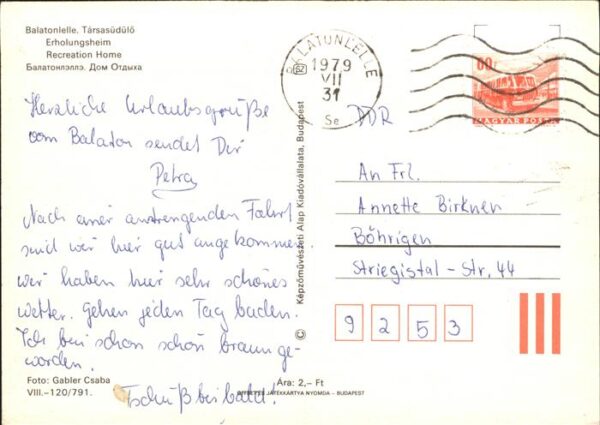 Balatonlelle. Társasüdülő
Erholungsheim
Recreation Home
Балатонлэллэ. Дом Отдыха
BALATONLELLE
1979
VII
31
Se
60f
MAGYAR POSTA
DDR
Herzliche Urlaubsgrüße
vom Balaton sendet Dir
Petra
Nach einer anstrengenden Fahrt
sind wir hier gut angekommen.
Wir haben hier sehr schönes
Wetter. Gehen jeden Tag baden.
Ich bin schon schön braun ge-
worden.
Tschüß bis bald!
Foto: Gabler Csaba
VIII.–120/791.
© Képzőművészeti Alap Kiadóvállalata, Budapest
An Frl.
Annette Birkner
Böhrigen
Striegistal-Str. 44
9 2 5 3
Ára: 2,– Ft
JÁTÉKKÁRTYA NYOMDA – BUDAPEST